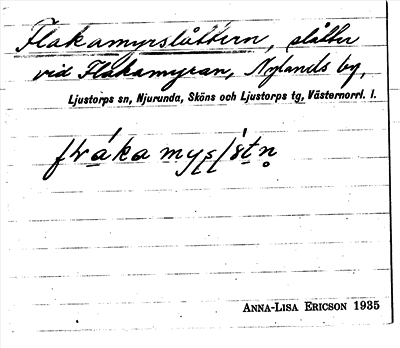 Flakamyrslåttern, slåtter
vid Flakamyran, Nylands by,
Ljustorps sn, Njurunda, Sköns och Ljustorps tg, Västernorrl. l.
ANNA-LISA ERICSON 1935